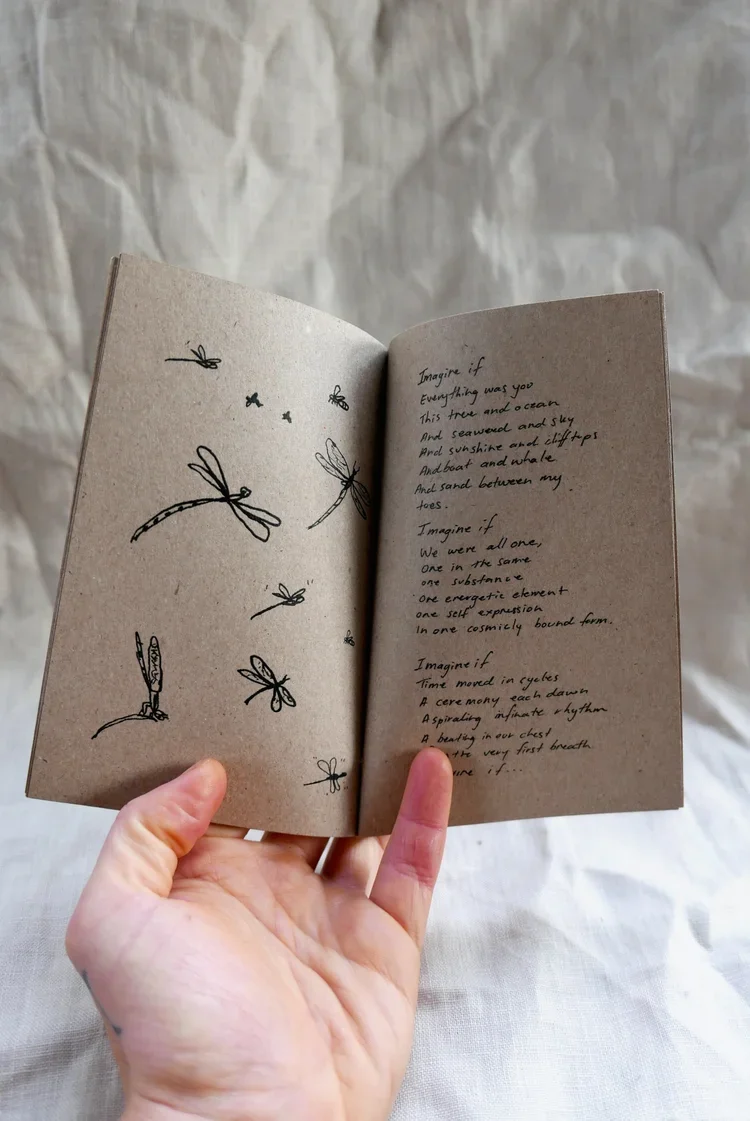 Imagine if
Everything was you
This tree and ocean
And seaweed and sky
And sunshine and clifftops
And boat and whale
And sand between my
toes.
Imagine if
We were all one,
One in the same
one substance
One energetic element
one self expression
In one cosmicly bound form.
Imagine if
Time moved in cycles
A ceremony each dawn
A spiraling infinate rhythm
A beating in our chest
the very first breath
if...